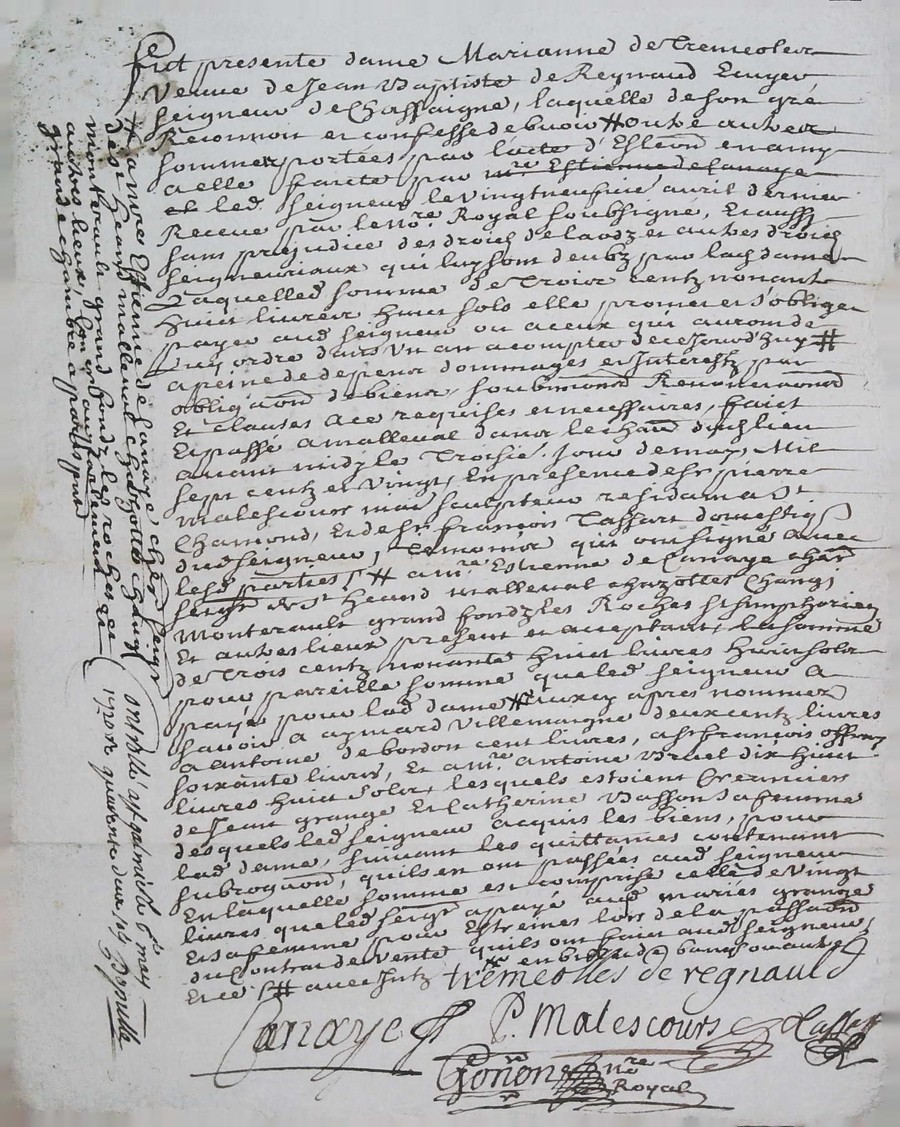 Fut presente dame Marianne de Tremeoles
Veuve de Jean Baptiste de Reynaud Escuyer
Seigneur de Chassaigne, laquelle de son gré
Reconnoit et confesse debvoir # outre autres
sommes portées par lacte d'Esleon en amy
a elle faicte par mre Estienne de Canaye
et led. Seigneur le vingtneufvie avril dernier
Receue par le nore Royal soubsigné, Et aussy
sans prejudice des droictz de laodz et autres droictz
seigneuriaux qui luy sont deubz par lad dame
Laquelled somme de Trois centz nonante
huict livres huict solz elle promet et s'oblige
payer aud seigneur ou a ceux qui auront de
luy ordre dans un an a compter de ce Jourd'huy #
a peine de despens dommages et Interestz par
obligaon de biens, soubmissions Renonciaons
Et clauses a ce requises et necessaires, faict
Et passé a malleval dans le chau dud lieu
avant midy le Troisie. Jour de may, Mil
sept centz et vingt, En presence de sr pierre
malescours me sculpteur residant a St
Chamond, Et de sr françois Tassart domestiq
dud seigneur, Temoins qui ont signé avec
lesd parties / # a mre Estienne de Canaye cher
seigr de St heand malleval chazottes Changy
Monterault grand fondz les Roches St simphorien
Et autres lieux present et acceptant, la somme
de Trois centz nonante huict livres huict solz
pour pareille somme que led seigneur a
payé pour lad dame # a ceux cy apres nommez
savoir a aymard Villemagne deux centz livres
a antoine debordon cent livres, a sr françois offray
soixante livres, Et a mre antoine Vruel dix huict
livres huict solz, lesquels estoient creanciers
de Jean grange Et Catherine Basson sa femme
desquels led seigneur a acquis les biens, pour
lad dame, suivant les quittances contenant
subrogaon, quils en ont passées aud seigneur
En laquelle somme est comprise celle de vingt
livres que led seigr a payé aud mariés grange
Et sa femme pour Estreines lors de la passaon
du Contrat de vente quils ont faict aud seigneur,
Et ce # avec sutz tremeolles de regnauld
Canaye P. Malescours Tassart
Gonon nre
Royal
# a mre Estienne de Canaye cher seigr
de St heand malleval chazottes changy
monterault grand fondz les roches et
autres lieux, conseiller au parlement de
grande chambre a paris present
controllé a St galmier le 6e may
1720 R. quarente deux s. 6d Doguelle